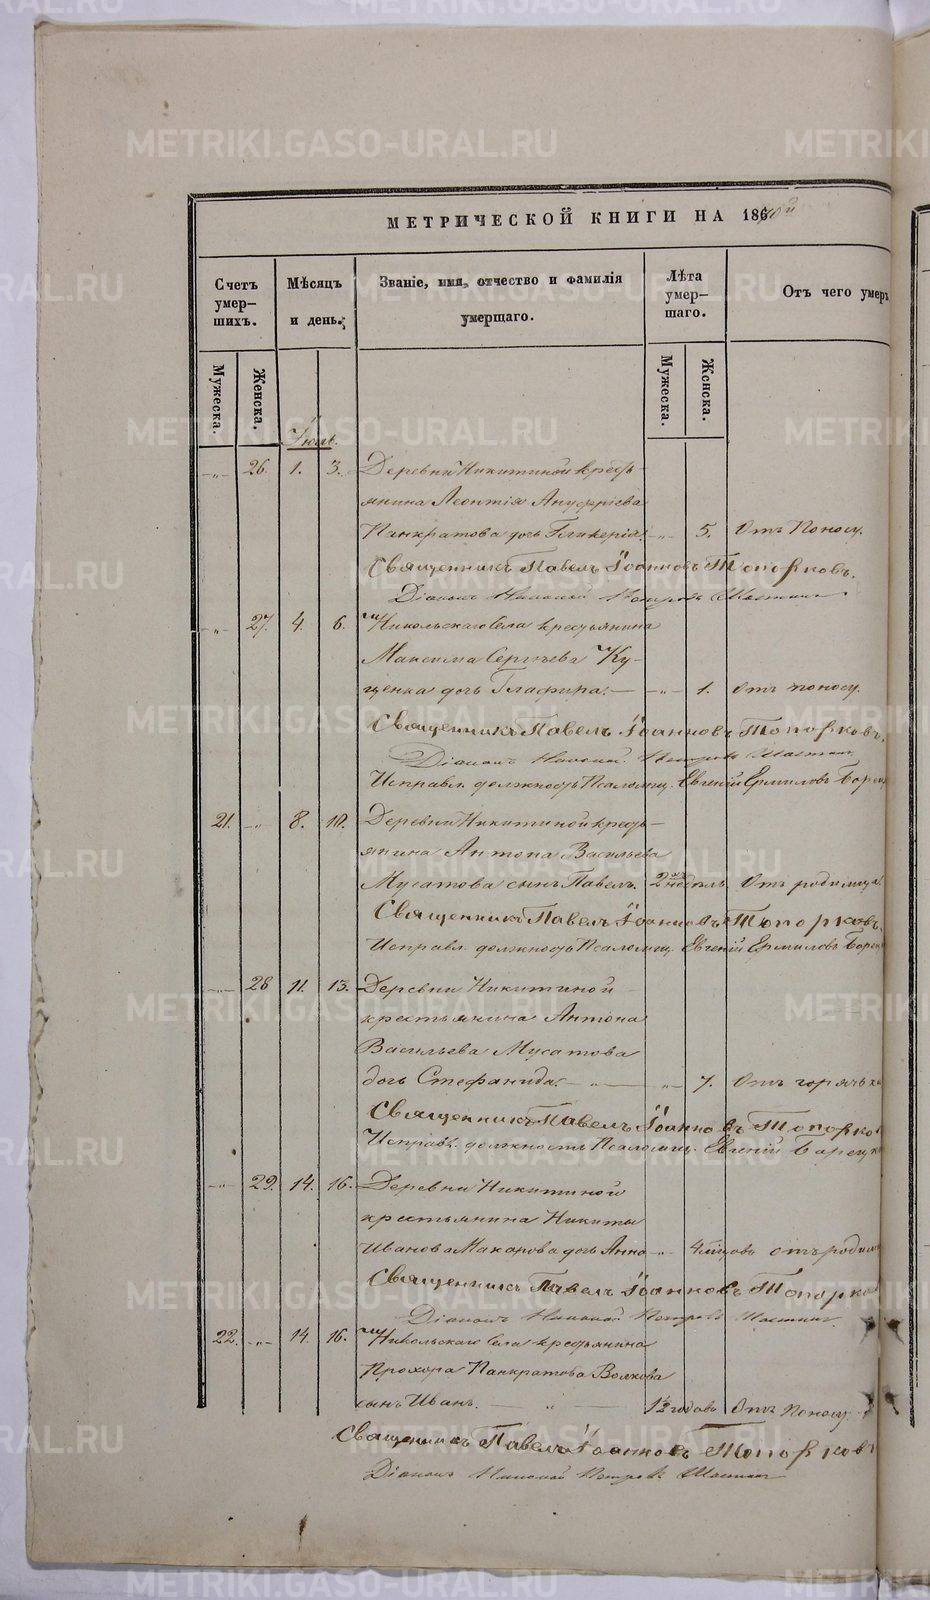 МЕТРИЧЕСКОЙ КНИГИ НА 1870й
Счетъ умер- шихъ.
Мѣсяцъ и день.
Званіе, имя, отчество и фамилія умершаго.
Лѣта умер- шаго.
Отъ чего умеръ
Мужеска.
Женска.
Мужеска.
Женска.
Іюль.
-„- 26. 1. 3. Деревни Никитиной кресть-
янина Леонтія Ануфріева
Панкратова дочь Гликерія. -„- 5. Отъ Поносу.
Священникъ Павелъ Іоанновъ Топорковъ.
Діаконъ Николай Петровъ
-„- 27. 4. 6. Никольскаго Села крестьянина
Максима Сергѣева Ку-
ценка дочь Глафира. -„- 1. Отъ поносу.
Священникъ Павелъ Іоанновъ Топорковъ.
Діаконъ Николай Петровъ
Исправл. должность Псаломщ. Евгеній Ермиловъ Борец
21. -„- 8. 10. Деревни Никитиной кресть-
янина Антона Васильева
Мусатова сынъ Павелъ. 2 недѣль Отъ родимца
Священникъ Павелъ Іоанновъ Топорковъ.
Исправл. должность Псаломщ. Евгеній Ермиловъ Борец
-„- 28 11. 13. Деревни Никитиной
крестьянина Антона
Васильева Мусатова
дочь Стефанида. -„- -„- 7. Отъ горячк
Священникъ Павелъ Іоанновъ Топорко
Исправл. должность Псаломщ. Евгеній Борецк
-„- 29. 14. 16. Деревни Никитиной
крестьянина Никиты
Иванова Макарова дочь Анна -„- 4 мцовъ отъ родим
Священникъ Павелъ Іоанновъ Топорко
Діаконъ Николай Петровъ
22. -„- 14. 16. Никольскаго Села крестьянина
Прохора Панкратова Волкова
сынъ Иванъ. -„- 1½ годовъ Отъ Поносу.
Священникъ Павелъ Іоанновъ Топорковъ
Діаконъ Николай Петровъ
METRIKI.GASO-URAL.RU